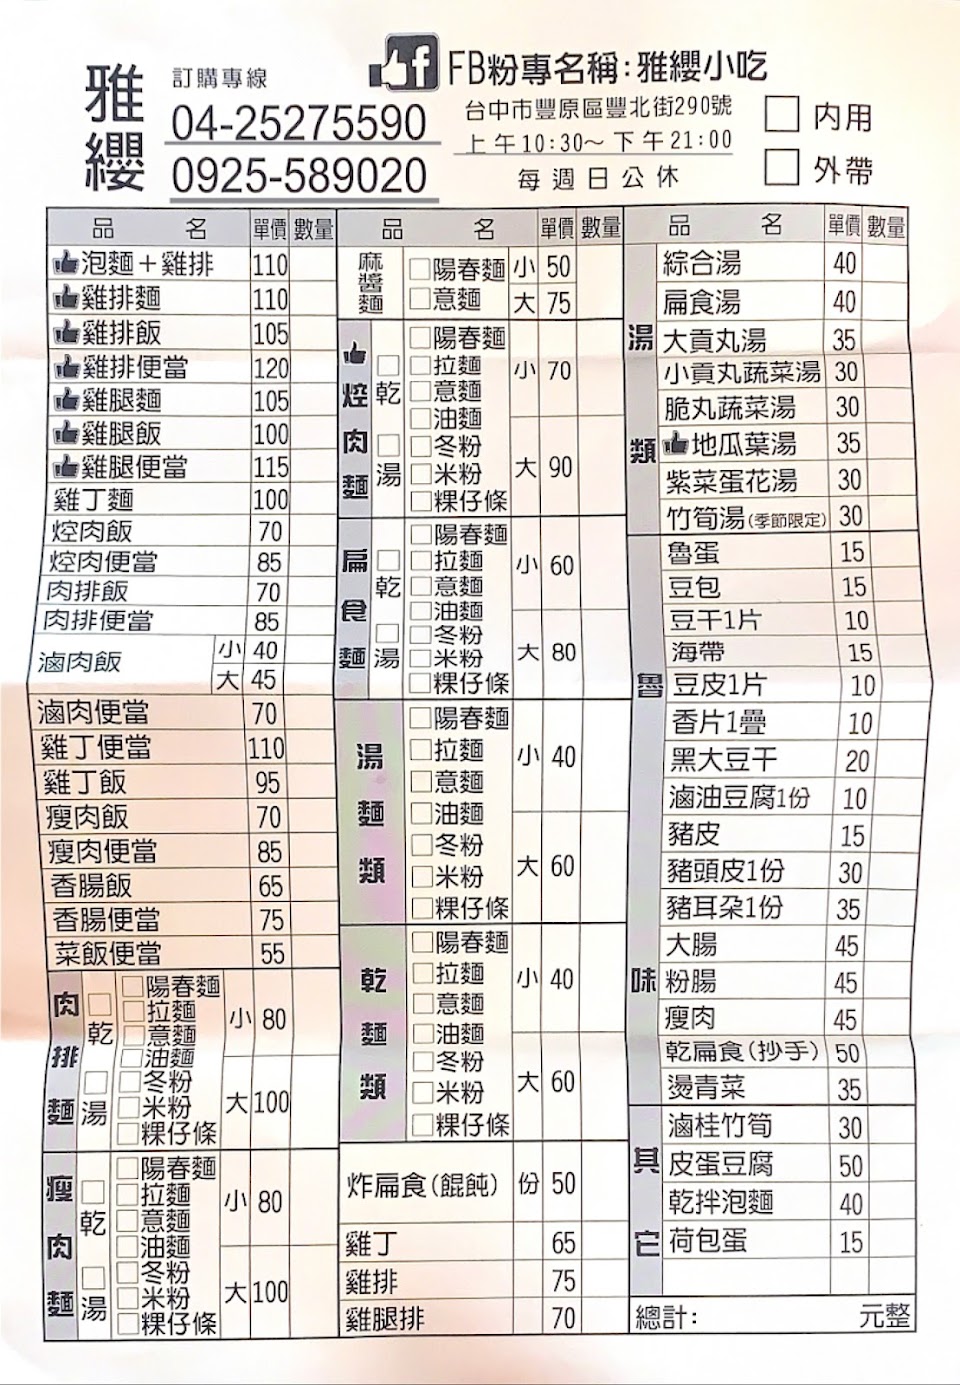 雅纓
訂購專線
04-25275590
0925-589020
FB粉專名稱:雅纓小吃
台中市豐原區豐北街290號
上午10:30~下午21:00
每週日公休
內用
外帶
品名 單價 數量
泡麵+雞排 110
雞排麵 110
雞排飯 105
雞排便當 120
雞腿麵 105
雞腿飯 100
雞腿便當 115
雞丁麵 100
焢肉飯 70
焢肉便當 85
肉排飯 70
肉排便當 85
滷肉飯 小 40
大 45
滷肉便當 70
雞丁便當 110
雞丁飯 95
瘦肉飯 70
瘦肉便當 85
香腸飯 65
香腸便當 75
菜飯便當 55
肉排麵
乾
湯
陽春麵
拉麵
意麵
油麵
冬粉
米粉
粿仔條
小 80
大 100
瘦肉麵
乾
湯
陽春麵
拉麵
意麵
油麵
冬粉
米粉
粿仔條
小 80
大 100
品名 單價 數量
麻醬麵
陽春麵 小 50
意麵 大 75
焢肉麵
乾
湯
陽春麵
拉麵
意麵
油麵
冬粉
米粉
粿仔條
小 70
大 90
扁食麵
乾
湯
陽春麵
拉麵
意麵
油麵
冬粉
米粉
粿仔條
小 60
大 80
湯麵類
陽春麵
拉麵
意麵
油麵
冬粉
米粉
粿仔條
小 40
大 60
乾麵類
陽春麵
拉麵
意麵
油麵
冬粉
米粉
粿仔條
小 40
大 60
炸扁食(餛飩) 份 50
雞丁 65
雞排 75
雞腿排 70
品名 單價 數量
湯類
綜合湯 40
扁食湯 40
大貢丸湯 35
小貢丸蔬菜湯 30
脆丸蔬菜湯 30
地瓜葉湯 35
紫菜蛋花湯 30
竹筍湯(季節限定) 30
魯味
魯蛋 15
豆包 15
豆干1片 10
海帶 15
豆皮1片 10
香片1疊 10
黑大豆干 20
滷油豆腐1份 10
豬皮 15
豬頭皮1份 30
豬耳朵1份 35
大腸 45
粉腸 45
瘦肉 45
乾扁食(抄手) 50
燙青菜 35
其它
滷桂竹筍 30
皮蛋豆腐 50
乾拌泡麵 40
荷包蛋 15
總計: 元整